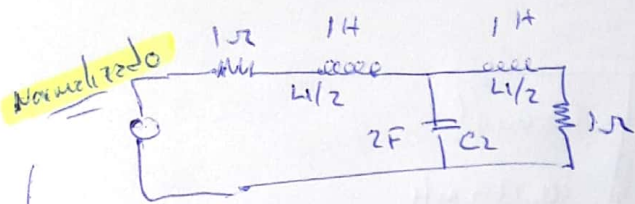 Normalizado
1Ω 1H 1H
L1/2 L1/2
2F C2 1Ω